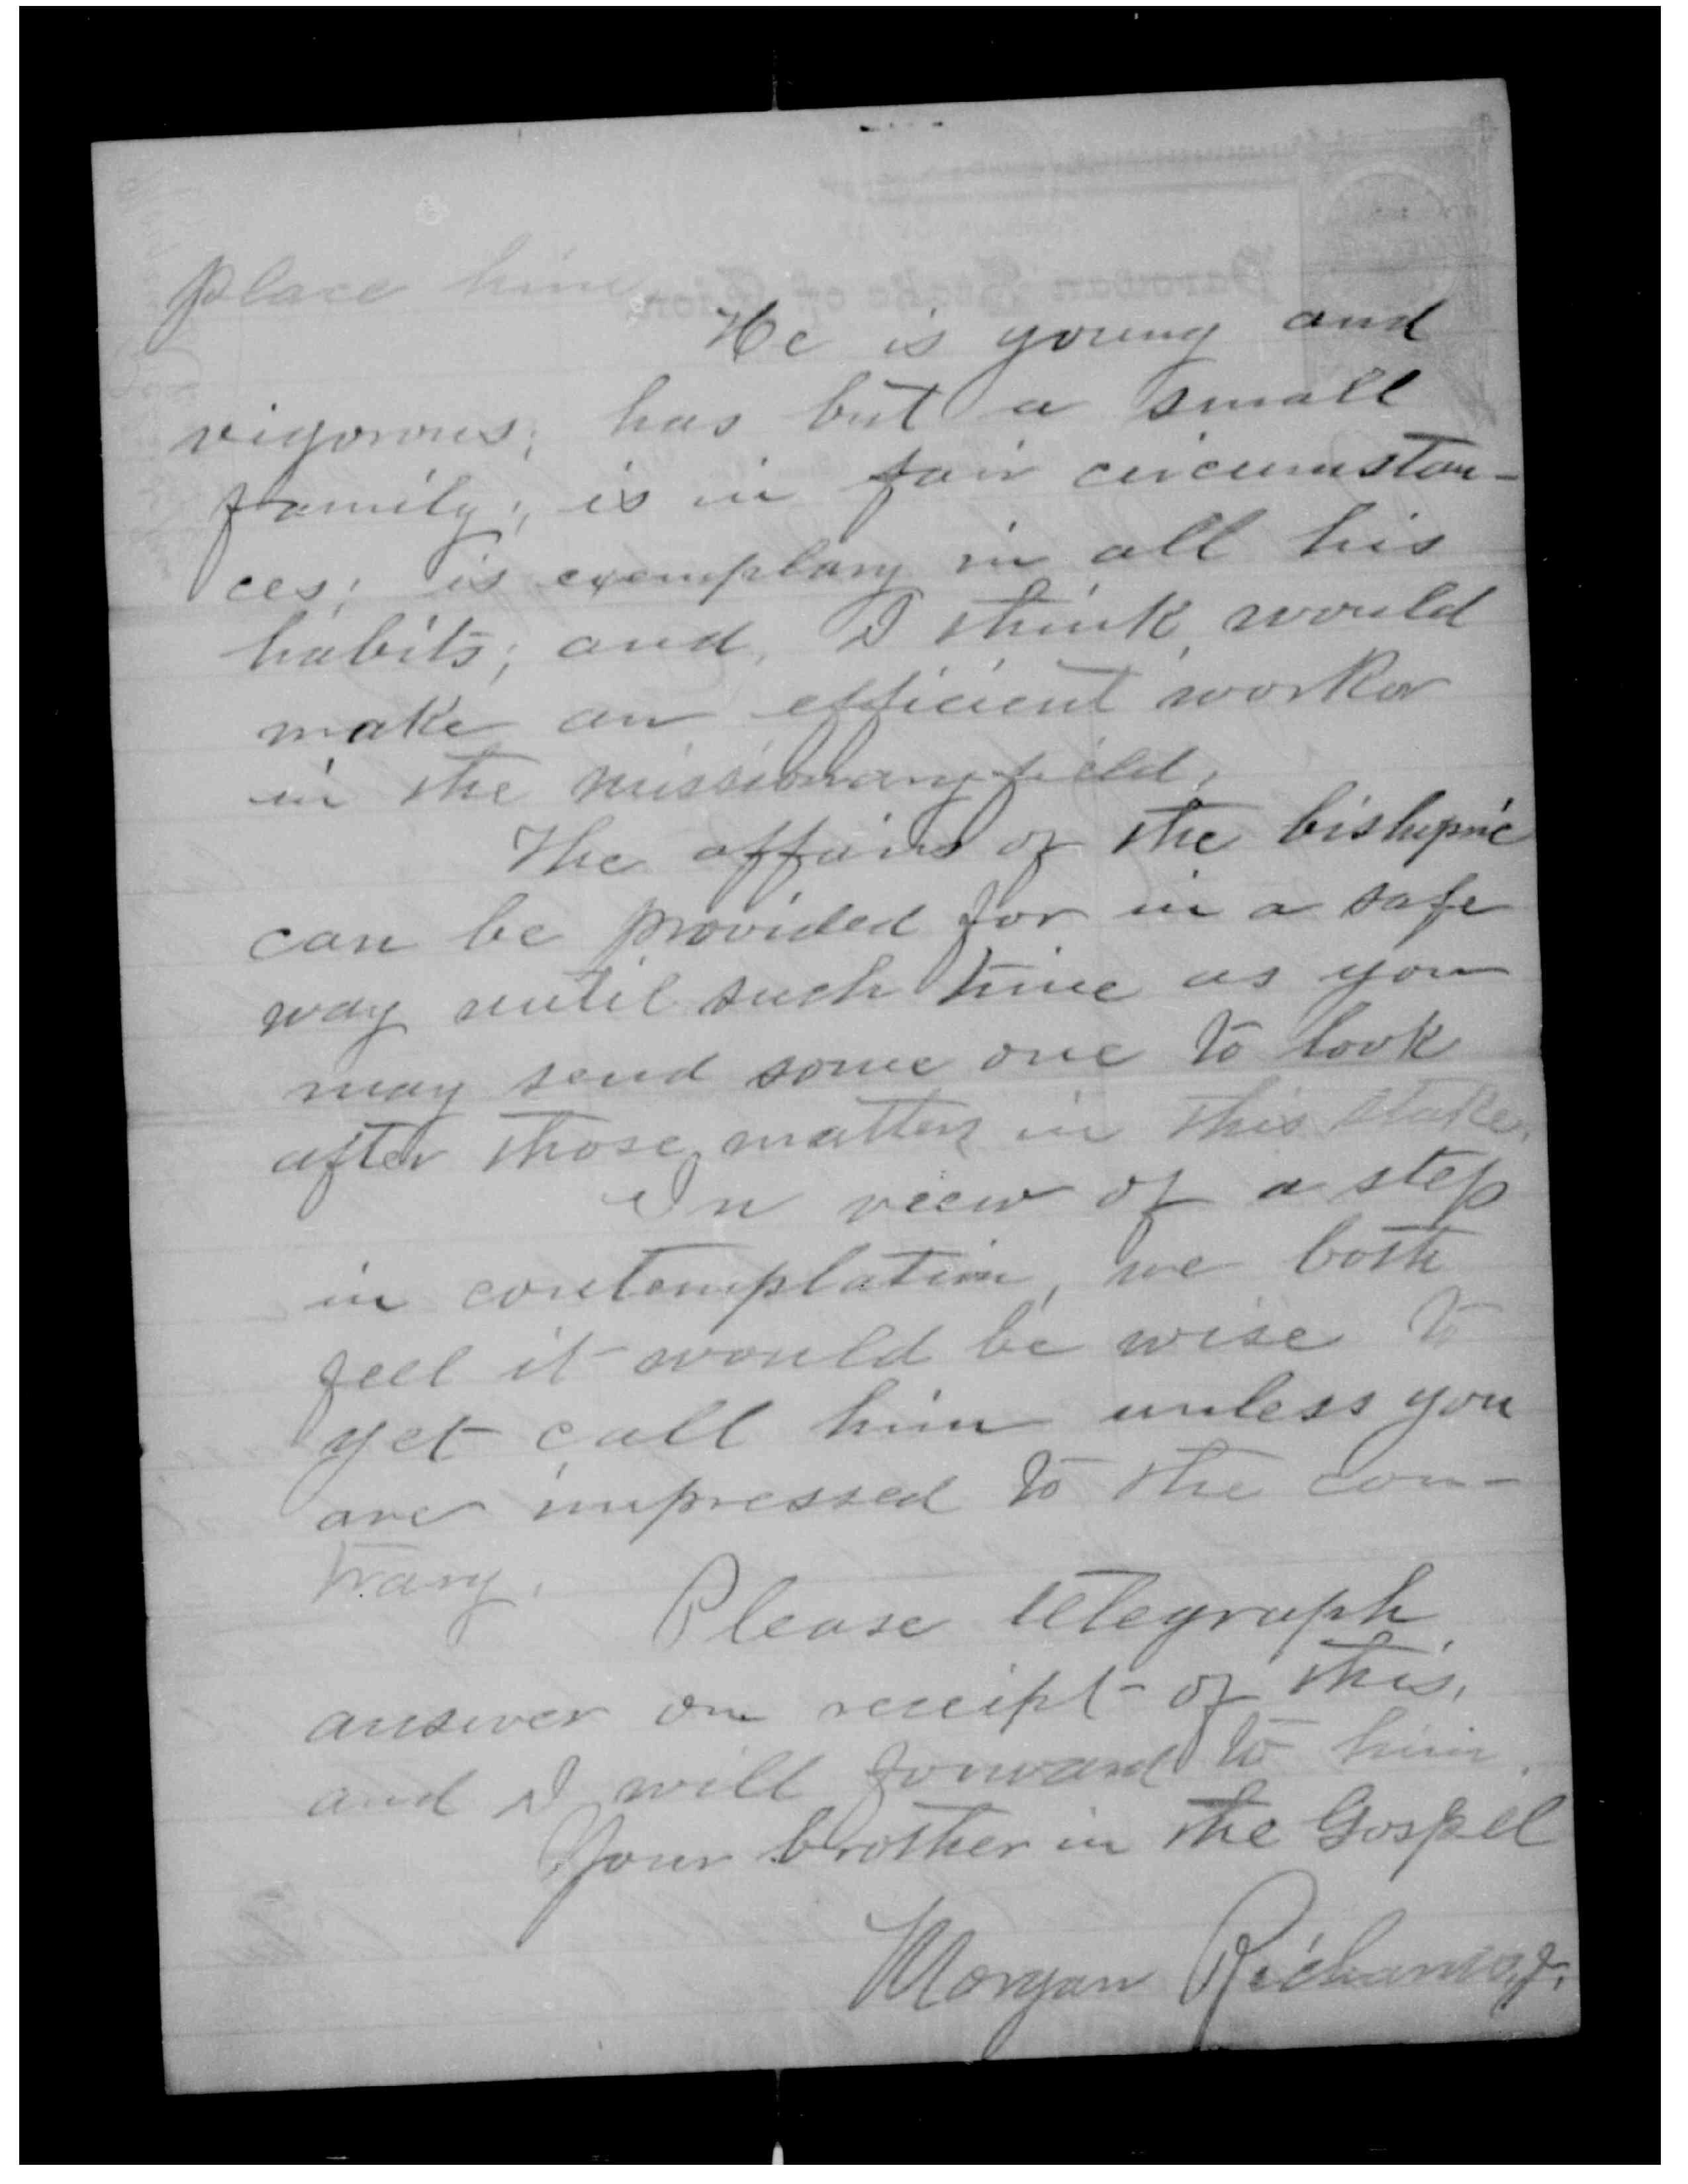 place him.
He is young and
vigorous; has but a small
family; is in fair circumstan-
ces; is exemplary in all his
habits; and, I think, would
make an efficient worker
in the missionary field.
The affairs of the bishopric
can be provided for in a safe
way until such time as you
may send some one to look
after those matters in this stake.
In view of a step
in contemplation, we both
feel it would be wise to
yet call him unless you
are impressed to the con-
trary.
Please telegraph
answer on receipt of this,
and I will forward to him.
Your brother in the Gospel
Morgan Richards, Jr.
Parowan Stake of Zion